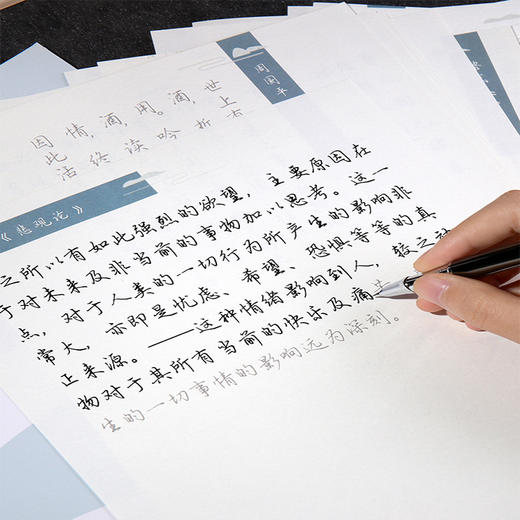 周国平
因情,酒,用。酒,世
《悲观论》
之所以有如此强烈的欲望,主要原因在
于对未来及非当前的事物加以思考。这一
点,对于人类的一切行为所产生的影响非
常大,亦即是忧虑、希望、恐惧等等的真
正来源。——这种情绪影响到人,较之动
物对于其所有当前的快乐及痛
生的一切事情的影响远为深刻。